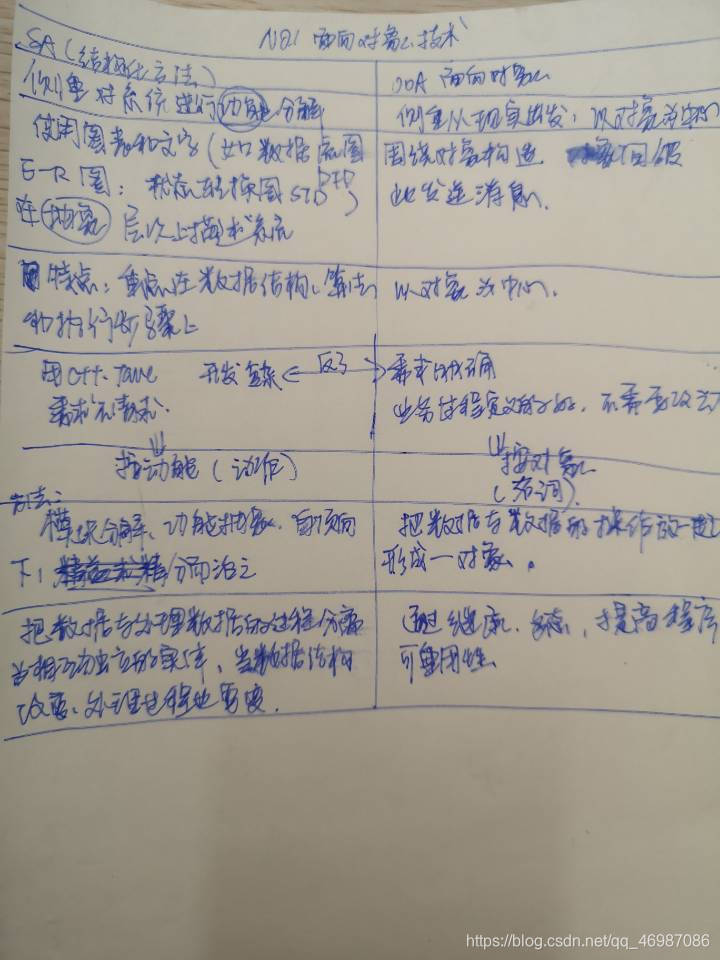 NO.1 面向对象技术
SA(结构化方法)
侧重对系统进行功能分解
使用图表和文字(如数据流图
DFD
E-R图;状态转换图STD)
在抽象层次上描述系统
OOA 面向对象
侧重从现实出发,以对象为中心
围绕对象构造
此发送消息.
特点:重点在数据结构、算法
和执行步骤上
以对象为中心.
用C++. Java 开发
需求不清楚.
需求明确
业务过程定义的好,不需要改变
按功能(动作)
按对象
(名词)
方法:
模块分解、功能抽象、自顶向
下,分而治之
把数据与数据的操作放一起
形成一对象.
把数据与处理数据的过程分离
当相互独立的实体,当数据结构
改变、处理过程也要变.
通过继承、多态,提高程序
可重用性
https://blog.csdn.net/qq_46987086